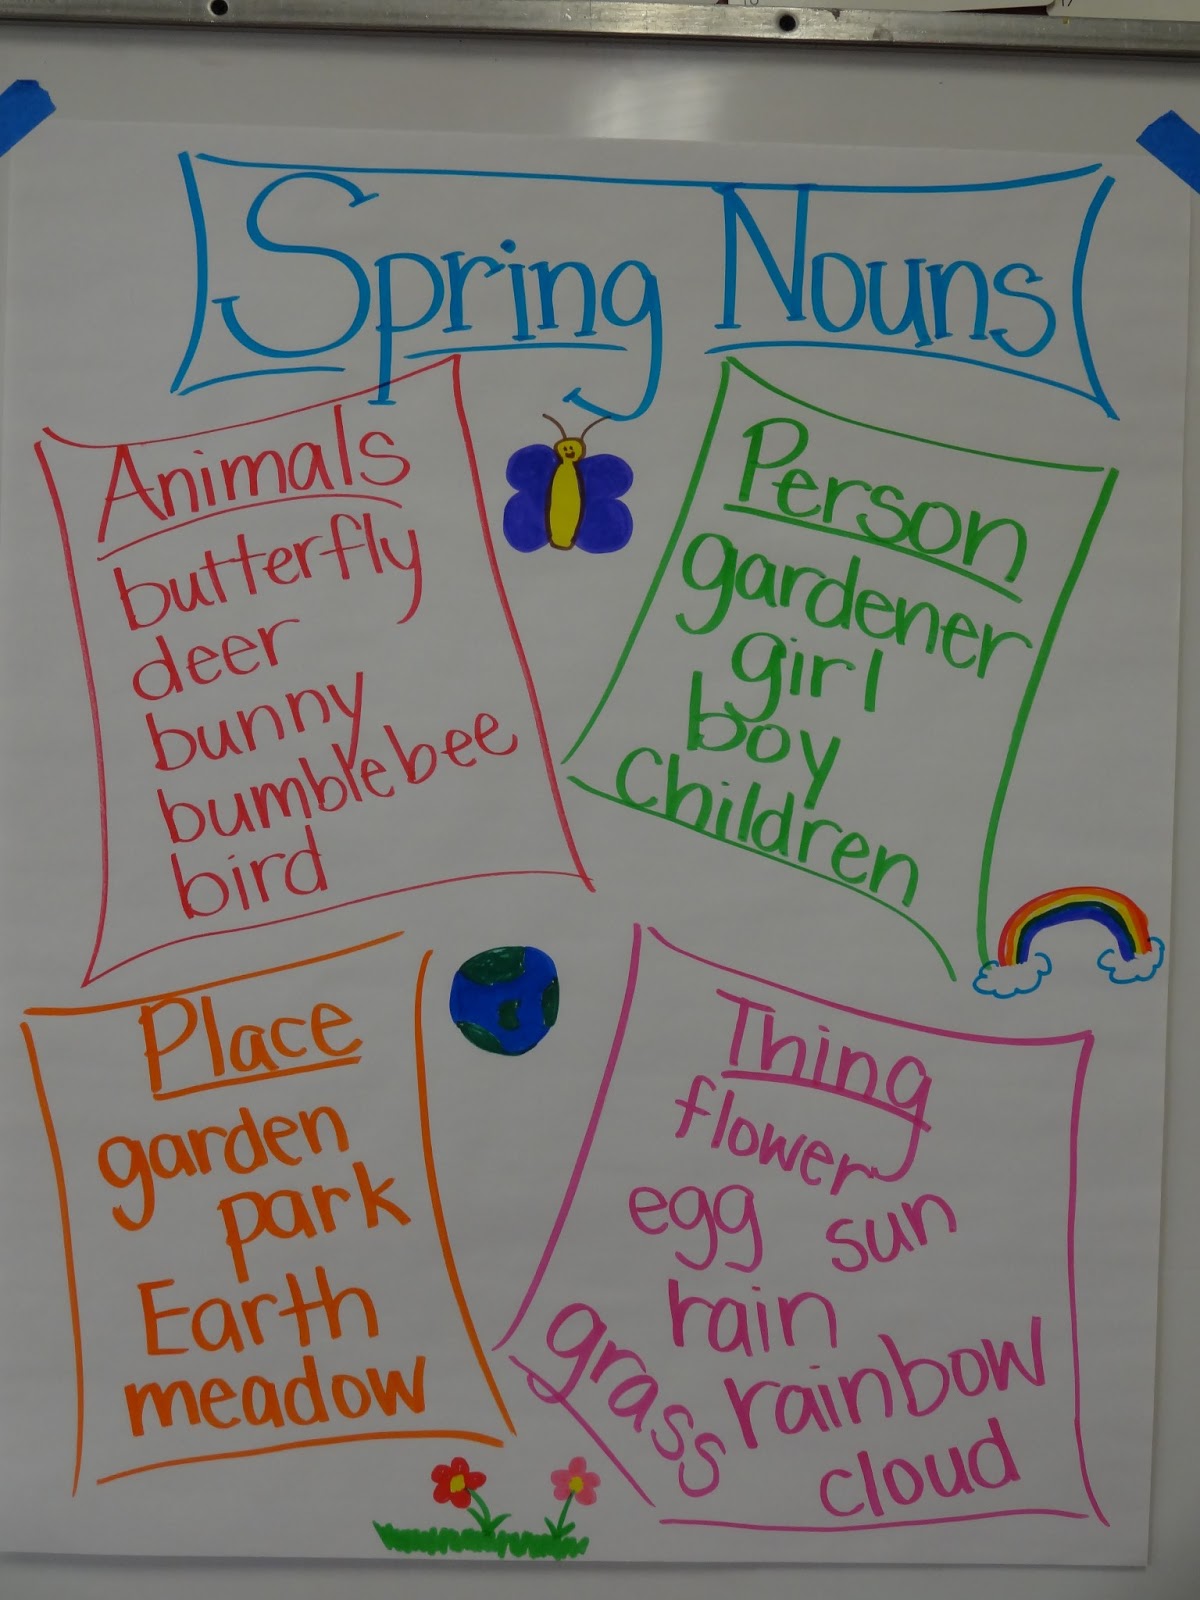 Spring Nouns
Animals
butterfly
deer
bunny
bumblebee
bird
Person
gardener
girl
boy
children
Place
garden
park
Earth
meadow
Thing
flower
egg sun
rain
grass rainbow
cloud